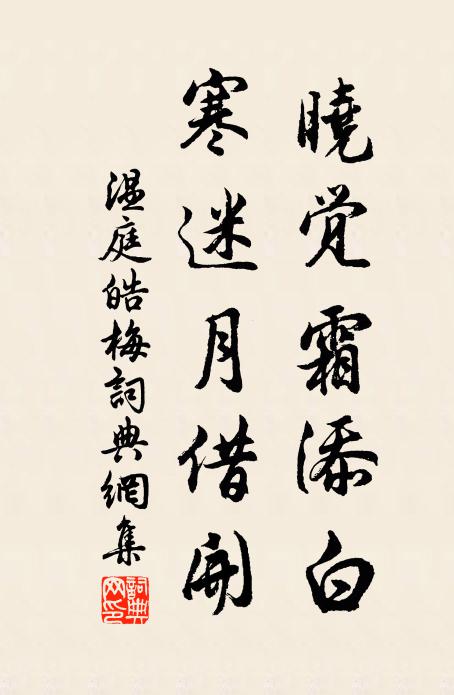 曉覚霜添白
寒迷月借開
温庭皓梅詞典網集
詞典網印